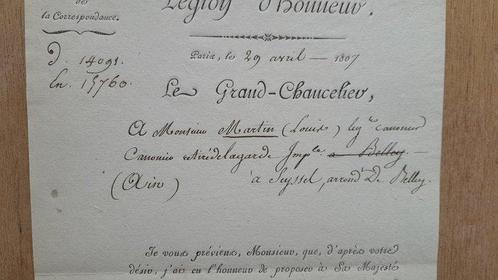 des
Légion d'honneur.
la Correspondance.
Paris, le 29 avril — 1807
D. 14091.
En. 15760.
Le Grand-Chancelier,
A Monsieur Martin (Louis)
Canonier retiré de la garde Imp.le a Belley
(Ain) a Seyssel, arrond.t De Belley
Je vous préviens, Monsieur, que, d'après votre
désir, j'ai eu l'honneur de proposer à Sa Majesté